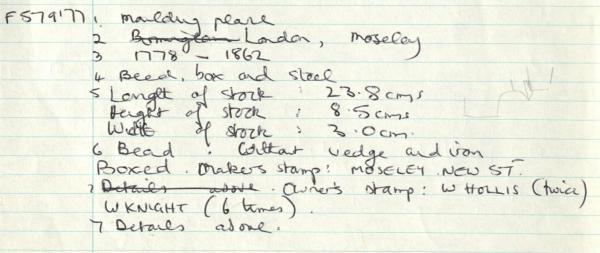 F579'77 1. Moulding plane
2 ~~Birmingham~~ London, Moseley
3 1778 - 1862
4 Beed, box and steel
5 Length of stock : 23.8cms
Height of stock : 8.5cms
Width of stock : 3.0cm.
6 Bead : Without wedge and iron
Boxed. Maker's stamp: MOSELEY. NEW ST.
7 ~~Details above~~. Owner's stamp: W HOLLIS (twice)
W KNIGHT (6 times).
7 Details above.